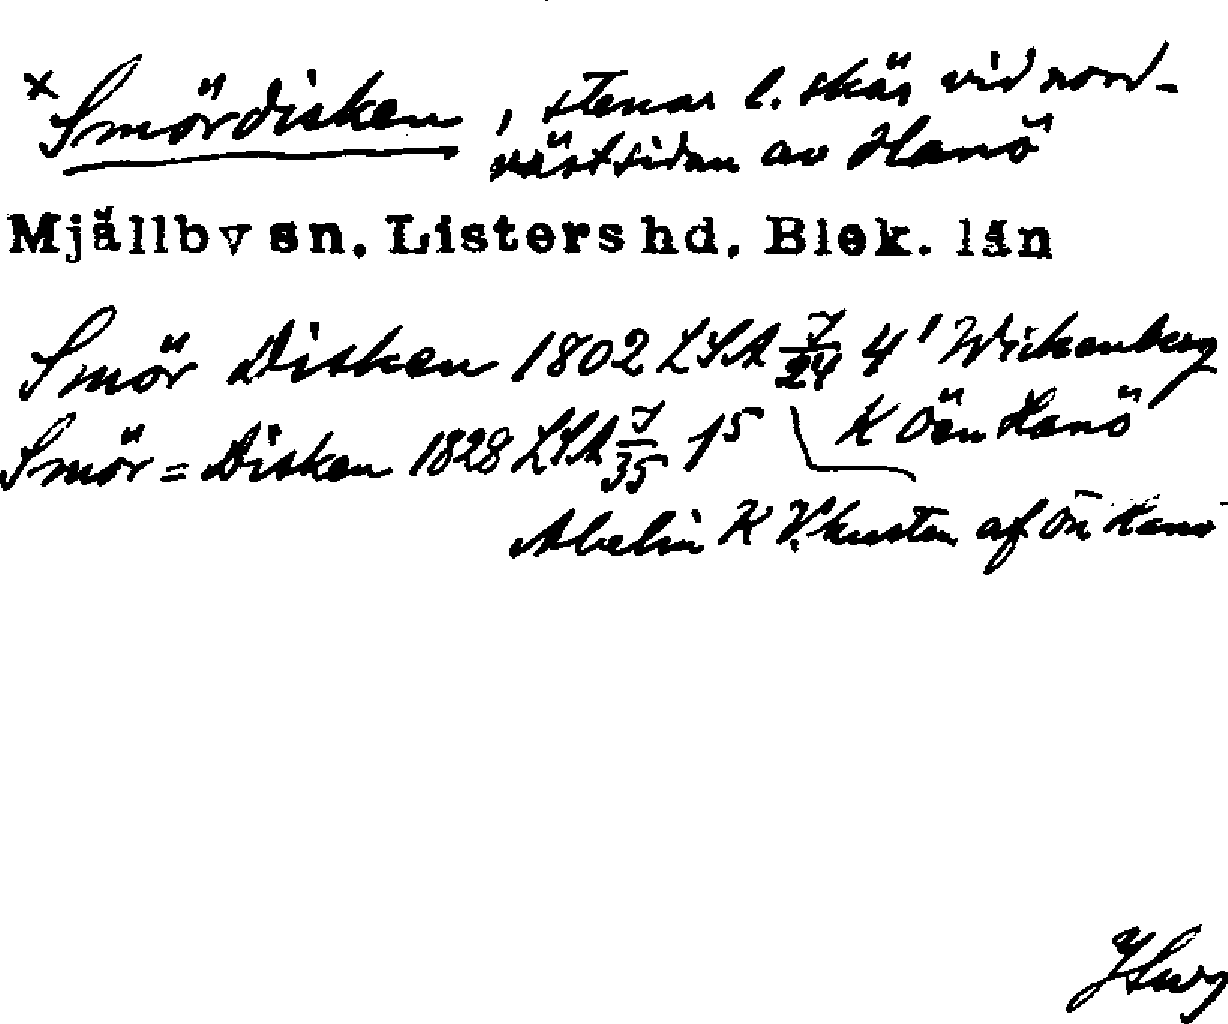 x Smördisken, stenar l. skär vid nord-
västsidan av Hanö
Mjällby sn. Listers hd. Blek. län
Smör Disken 1802 LSA J/24 4¹ Wickenberg
K Öen Hanö
Smör=Disken 1828 LSA J/35 1⁵
Abelin K V. kusten af Ön Hanö